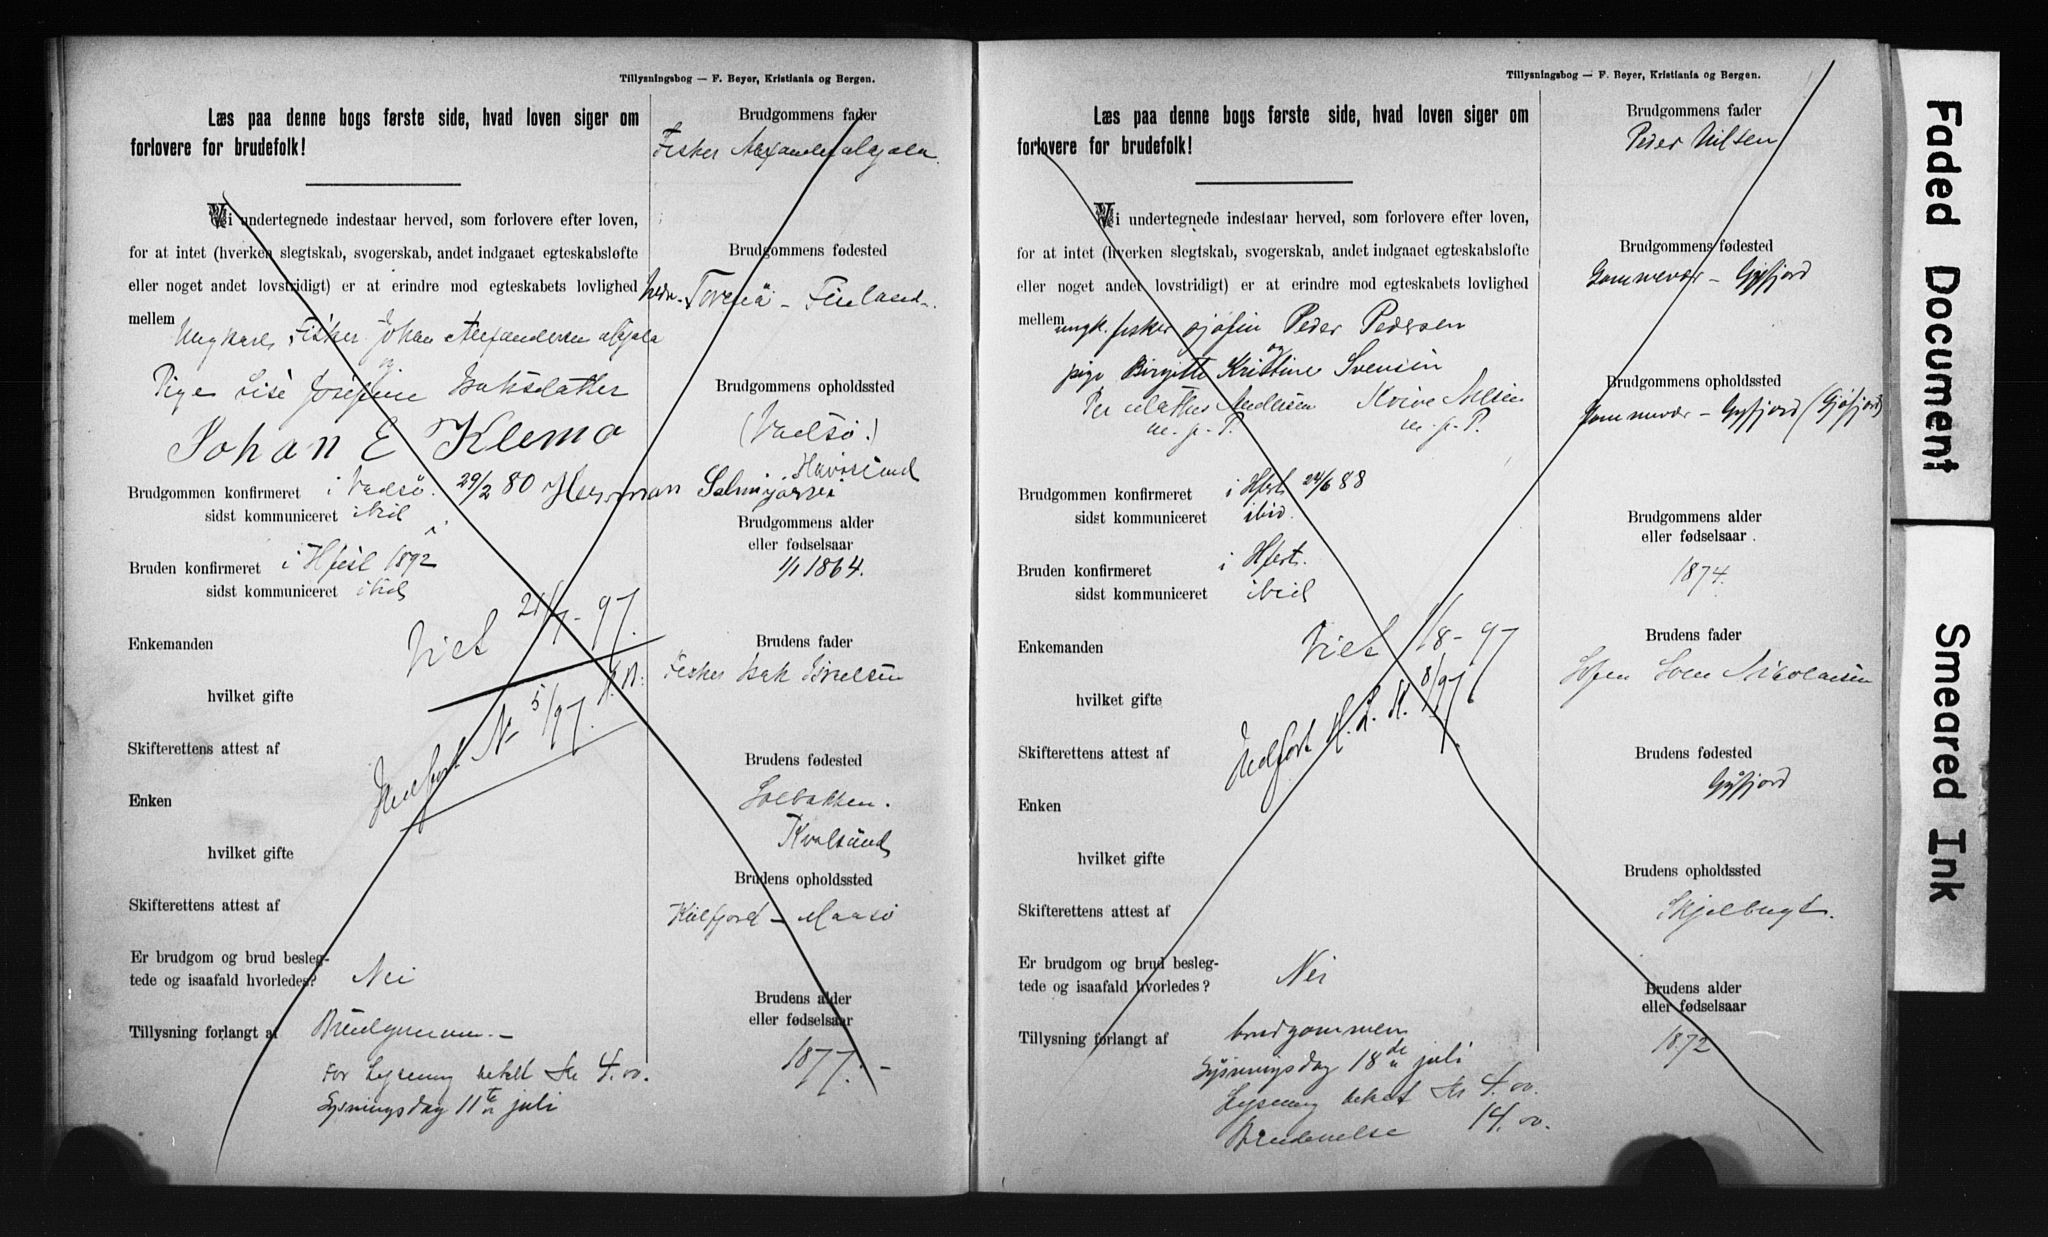 Tillysningsbog — F. Beyer, Kristiania og Bergen.
Læs paa denne bogs første side, hvad loven siger om
forlovere for brudefolk!
Vi undertegnede indestaar herved, som forlovere efter loven,
for at intet (hverken slegtskab, svogerskab, andet indgaaet egteskabsløfte
eller noget andet lovstridigt) er at erindre mod egteskabets lovlighed
mellem
Ungkarl, Fisker Johan Alexandersen
og
Pige Lise Josefine Isaksdatter
Johan E Klemo
Brudgommen konfirmeret i Vadsø. 29/2 80 Herman
sidst kommuniceret ibid
Bruden konfirmeret i Hfest 1892
sidst kommuniceret ibid
Enkemanden
Viet 21/7-97.
hvilket gifte
Skifterettens attest af
Indført N 5/97.
Enken
hvilket gifte
Skifterettens attest af
Er brudgom og brud besleg-
tede og isaafald hvorledes? Nei
Tillysning forlangt af Brudgommen. -
For Lysning betalt Kr 4.00.
Lysningsdag 11te juli
Brudgommens fader
Fisker Alexander
Brudgommens fødested
Torneå - Finland.
Brudgommens opholdssted
(Vadsø.)
Havøsund
Brudgommens alder
eller fødselsaar
1/1 1864.
Brudens fader
Fisker Isak
Brudens fødested
Solbakken.
Kvalsund
Brudens opholdssted
Kulfjord - Maasø
Brudens alder
eller fødselsaar
1877. -
Tillysningsbog — F. Beyer, Kristiania og Bergen.
Læs paa denne bogs første side, hvad loven siger om
forlovere for brudefolk!
Vi undertegnede indestaar herved, som forlovere efter loven,
for at intet (hverken slegtskab, svogerskab, andet indgaaet egteskabsløfte
eller noget andet lovstridigt) er at erindre mod egteskabets lovlighed
mellem ungk. fisker Peder Pedersen
og
pige Birgitte Kristine Svensen
Per Mathis Andersen
m. p. P. m. p. P.
Brudgommen konfirmeret i Hfest 24/6 88
sidst kommuniceret ibid.
Bruden konfirmeret i Hfest.
sidst kommuniceret ibid
Enkemanden
Viet 1/8-97
hvilket gifte
Skifterettens attest af
Indført H. L. K. 8/97.
Enken
hvilket gifte
Skifterettens attest af
Er brudgom og brud besleg-
tede og isaafald hvorledes? Nei
Tillysning forlangt af brudgommen
Lysningsdag 18de juli
Lysning betalt Kr 4.00
14.00.
Brudgommens fader
Peder Nilsen
Brudgommens fødested
Gommevær -
Brudgommens opholdssted
Gommevær -
Brudgommens alder
eller fødselsaar
1874.
Brudens fader
Sven Nikolaisen
Brudens fødested
Brudens opholdssted
Skjelbugt.
Brudens alder
eller fødselsaar
1872
Faded Document
Smeared Ink